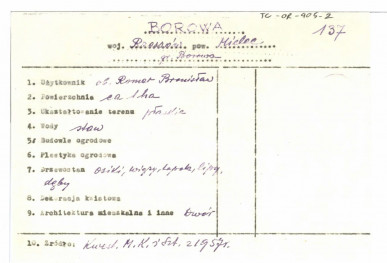 TC-OR-905-2
BOROWA 137
woj. Rzeszów pow. Mielec
gr. Borowa
1. Użytkownik ob. Roman Bronisław
2. Powierzchnia ca 1 ha
3. Ukształtowanie terenu płaskie
4. Wody staw
5. Budowle ogrodowe
6. Plastyka ogrodowa
7. Drzewostan osiki, wiązy, topole, lipy,
dęby
8. Dekoracja kwiatowa
9. Architektura mieszkalna i inne Dwór
10. Źródło: Kwed. M.K. i Szt. z 1957 r.